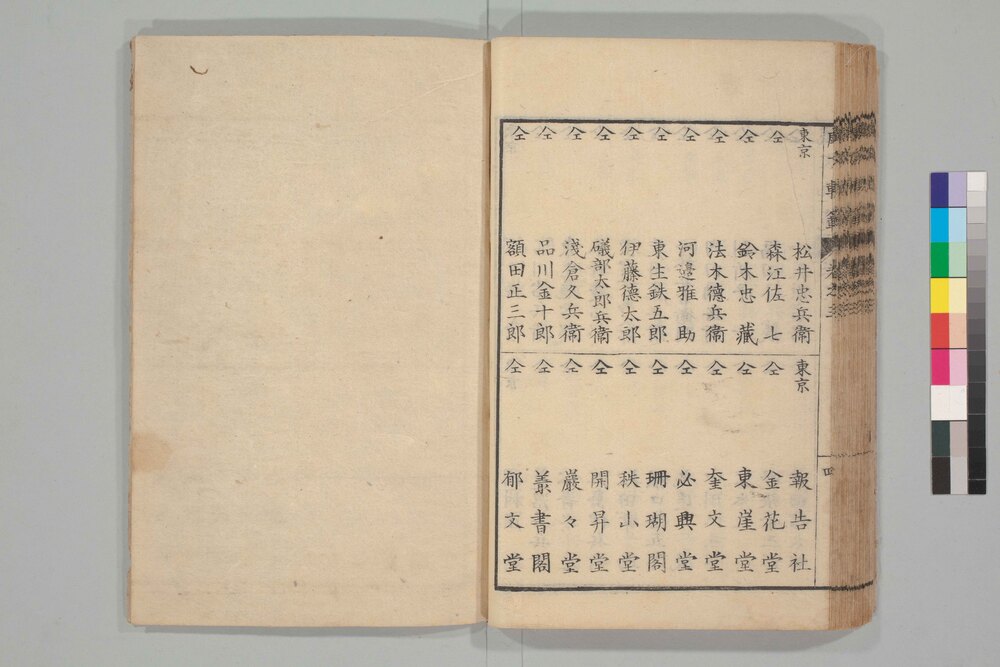 東京 松井忠兵衞
仝 森江佐七
仝 鈴木忠藏
仝 法木德兵衞
仝 河邉雅助
仝 東生鉄五郎
仝 伊藤德太郎
仝 礒部太郎兵衞
仝 淺倉久兵衞
仝 品川金十郎
仝 額田正三郎
東京 報告社
仝 金花堂
仝 東崖堂
仝 奎文堂
仝 必興堂
仝 珊瑚閣
仝 秩山堂
仝 開昇堂
仝 巖々堂
仝 叢書閣
仝 郁文堂
四